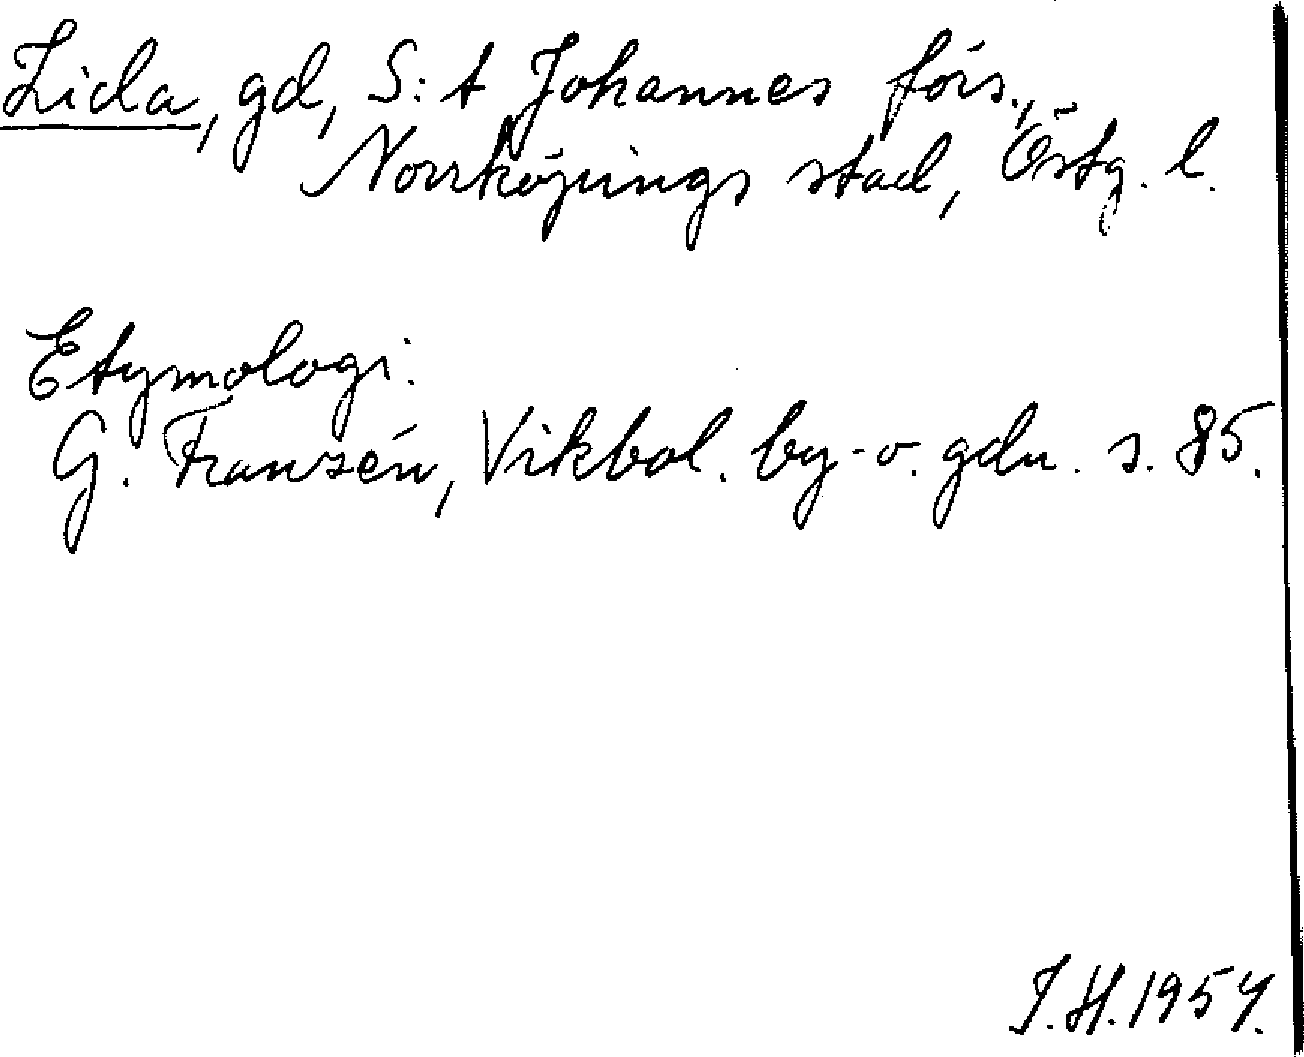 Lida, gd, S:t Johannes förs.,
Norrköpings stad, Östg. l.
Etymologi:
G. Franzén, Vikbol. by- o. gdn. s. 85.
J.H.1954.